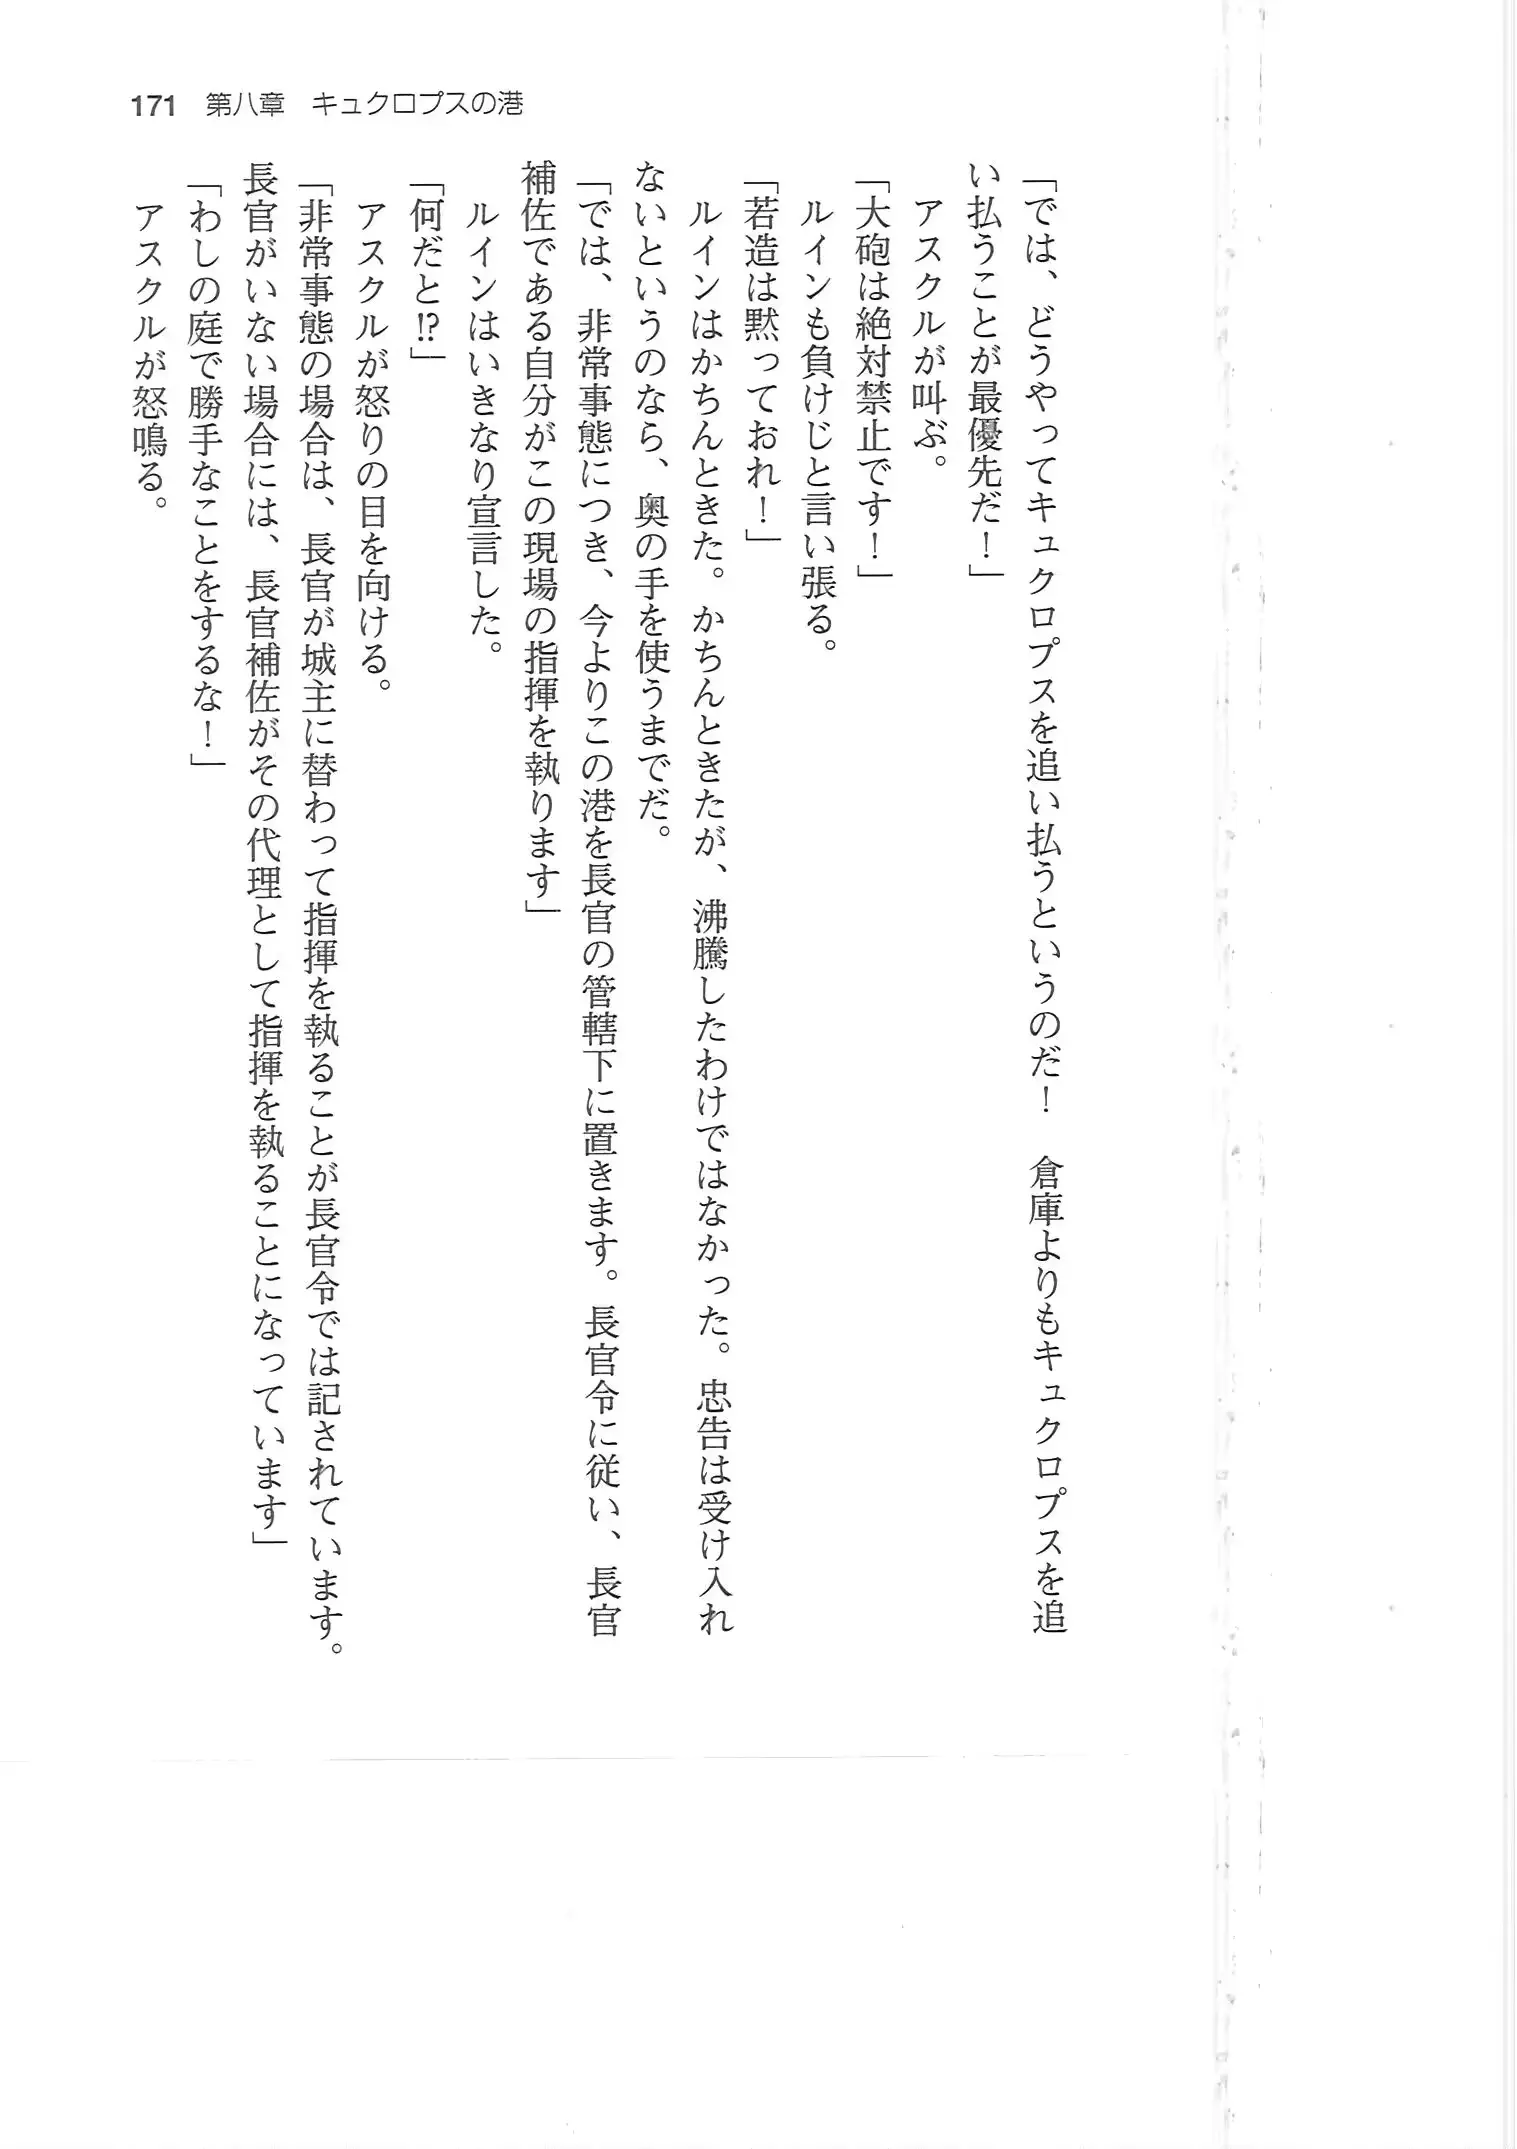 171 第八章 キュクロプスの港
「では、どうやってキュクロプスを追い払うというのだ！　倉庫よりもキュクロプスを追
い払うことが最優先だ！」
　アスクルが叫ぶ。
「大砲は絶対禁止です！」
　ルインも負けじと言い張る。
「若造は黙っておれ！」
　ルインはかちんときた。かちんときたが、沸騰したわけではなかった。忠告は受け入れ
ないというのなら、奥の手を使うまでだ。
「では、非常事態につき、今よりこの港を長官の管轄下に置きます。長官令に従い、長官
補佐である自分がこの現場の指揮を執ります」
　ルインはいきなり宣言した。
「何だと!?」
　アスクルが怒りの目を向ける。
「非常事態の場合は、長官が城主に替わって指揮を執ることが長官令では記されています。
長官がいない場合には、長官補佐がその代理として指揮を執ることになっています」
「わしの庭で勝手なことをするな！」
　アスクルが怒鳴る。